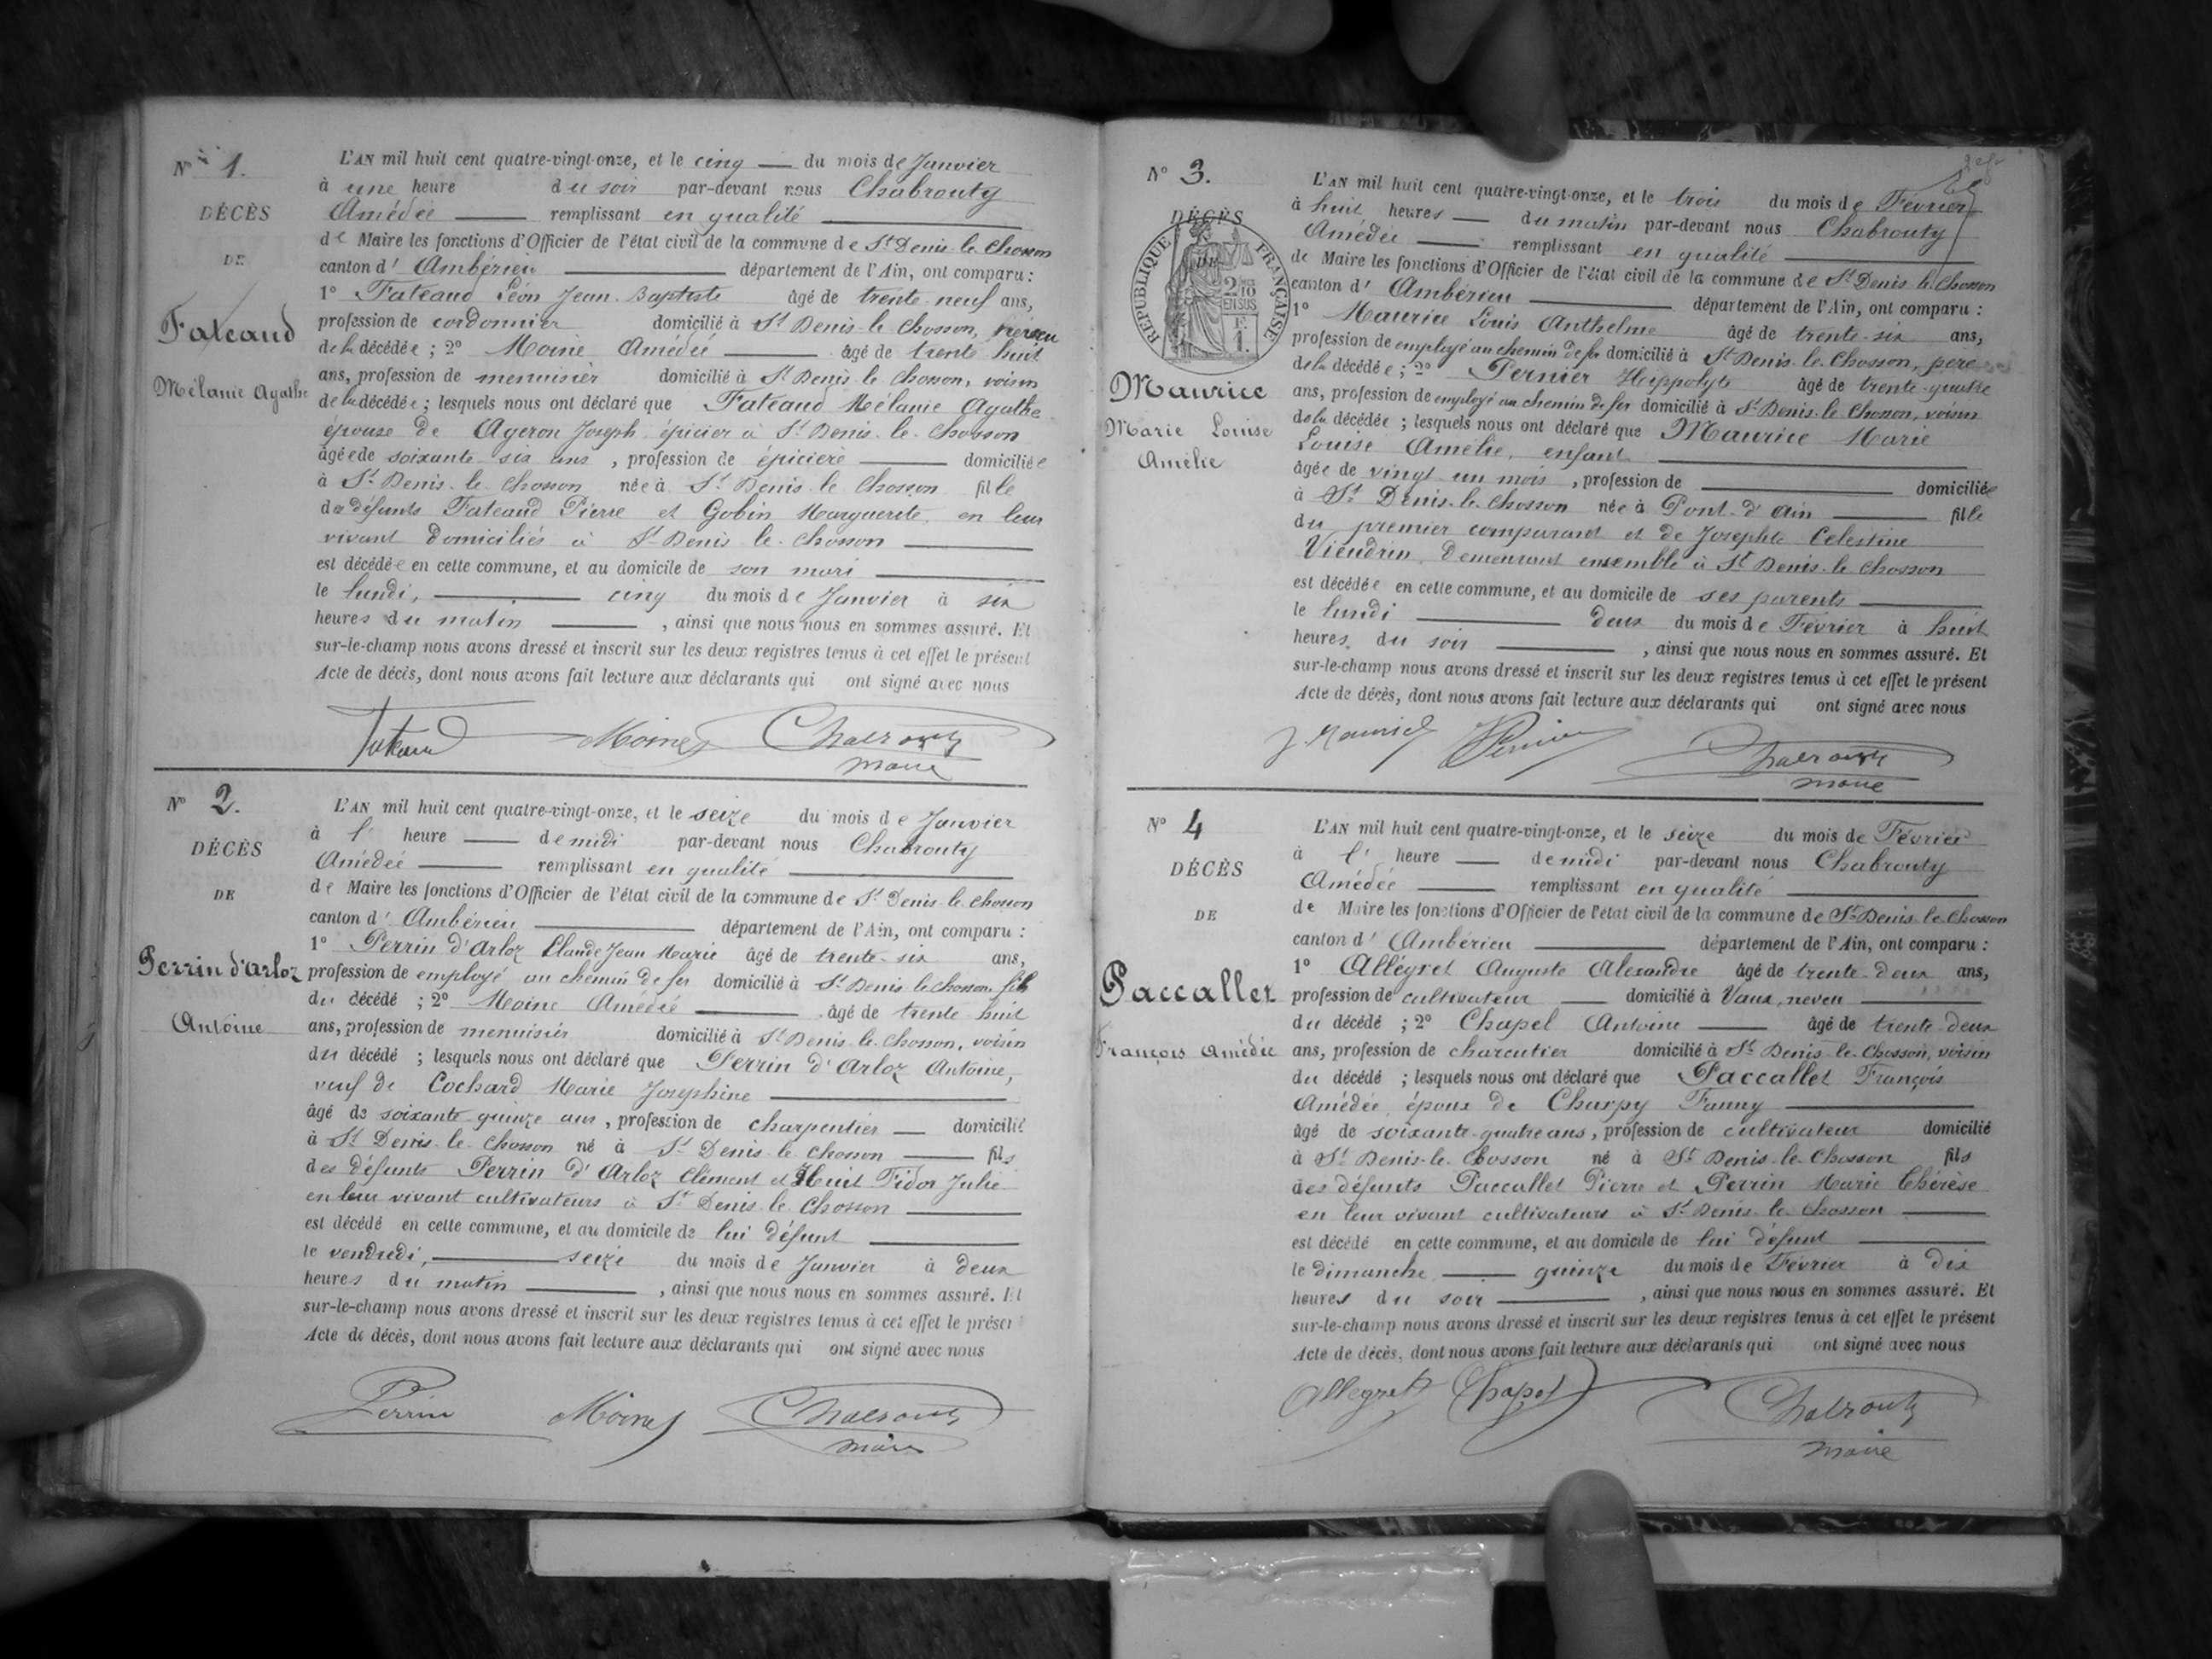 N° 1.
DÉCÈS
DE
Fateaud
Mélanie Agathe
L'AN mil huit cent quatre-vingt-onze, et le cinq du mois de Janvier
à une heure du soir par-devant nous Chabrouty
Amédée remplissant en qualité
de Maire les fonctions d'Officier de l'état civil de la commune de St Denis le Chosson
canton d'Ambérieu département de l'Ain, ont comparu :
1° Fateaud Léon Jean-Baptiste âgé de trente-neuf ans,
profession de cordonnier domicilié à St Denis-le-Chosson, neveu
de la décédée ; 2° Moine Amédée âgé de trente huit
ans, profession de menuisier domicilié à St Denis le Chosson, voisin
de la décédée ; lesquels nous ont déclaré que Fateaud Mélanie Agathe
épouse de Ageron Joseph épicier à St Denis-le-Chosson
âgée de soixante-six ans, profession de épicière domiciliée
à St Denis-le-Chosson née à St Denis le Chosson fille
de défunts Fateaud Pierre et Gobin Marguerite en leur
vivant domiciliés à St Denis le Chosson
est décédée en cette commune, et au domicile de son mari
le lundi, cinq du mois de Janvier à six
heures du matin, ainsi que nous nous en sommes assuré. Et
sur-le-champ nous avons dressé et inscrit sur les deux registres tenus à cet effet le présent
Acte de décès, dont nous avons fait lecture aux déclarants qui ont signé avec nous
Fateaud Moine Chabrouty
maire
N° 2.
DÉCÈS
DE
Perrin d'Arloz
Antoine
L'AN mil huit cent quatre-vingt-onze, et le seize du mois de Janvier
à l' heure de midi par-devant nous Chabrouty
Amédée remplissant en qualité
de Maire les fonctions d'Officier de l'état civil de la commune de St Denis-le-Chosson
canton d'Ambérieu département de l'Ain, ont comparu :
1° Perrin d'Arloz Claude Jean Marie âgé de trente-six ans,
profession de employé au chemin de fer domicilié à St Denis le Chosson, fils
du décédé ; 2° Moine Amédée âgé de trente-huit
ans, profession de menuisier domicilié à St Denis-le-Chosson, voisin
du décédé ; lesquels nous ont déclaré que Perrin d'Arloz Antoine,
veuf de Cochard Marie Josephine
âgé de soixante-quinze ans, profession de charpentier domicilié
à St Denis-le-Chosson né à St Denis-le-Chosson fils
des défunts Perrin d'Arloz Clément et Julie
en leur vivant cultivateurs à St Denis le Chosson
est décédé en cette commune, et au domicile de lui défunt
le vendredi, seize du mois de Janvier à deux
heures du matin, ainsi que nous nous en sommes assuré. Et
sur-le-champ nous avons dressé et inscrit sur les deux registres tenus à cet effet le présen
Acte de décès, dont nous avons fait lecture aux déclarants qui ont signé avec nous
Perrin Moine Chabrouty
maire
N° 3.
DÉCÈS
DE
RÉPUBLIQUE FRANÇAISE
2/10 EN SUS
Maurice
Marie Louise
Amélie
L'AN mil huit cent quatre-vingt-onze, et le trois du mois de Février
à huit heures du matin par-devant nous Chabrouty
Amédée remplissant en qualité
de Maire les fonctions d'Officier de l'état civil de la commune de St Denis le Chosson
canton d'Ambérieu département de l'Ain, ont comparu :
1° Maurice Louis Anthelme âgé de trente-six ans,
profession de employé au chemin de fer domicilié à St Denis-le-Chosson, père
de la décédée ; 2° Pernier Hippolyte âgé de trente-quatre
ans, profession de employé au chemin de fer domicilié à St Denis-le-Chosson, voisin
de la décédée ; lesquels nous ont déclaré que Maurice Marie
Louise Amélie, enfant
âgée de vingt un mois, profession de domiciliée
à St Denis-le-Chosson née à Pont-d'Ain fille
du premier comparant et de Josephte Celestine
Viendrin, demeurant ensemble à St Denis-le-Chosson
est décédée en cette commune, et au domicile de ses parents
le lundi deux du mois de Février à huit
heures du soir, ainsi que nous nous en sommes assuré. Et
sur-le-champ nous avons dressé et inscrit sur les deux registres tenus à cet effet le présent
Acte de décès, dont nous avons fait lecture aux déclarants qui ont signé avec nous
Maurice Pernier Chabrouty
maire
N° 4
DÉCÈS
DE
Paccallet
François Amédée
L'AN mil huit cent quatre-vingt-onze, et le seize du mois de Février
à l' heure de midi par-devant nous Chabrouty
Amédée remplissant en qualité
de Maire les fonctions d'Officier de l'état civil de la commune de St Denis-le-Chosson
canton d'Ambérieu département de l'Ain, ont comparu :
1° Allégret Auguste Alexandre âgé de trente-deux ans,
profession de cultivateur domicilié à Vaux, neveu
du décédé ; 2° Chapel Antoine âgé de trente-deux
ans, profession de charcutier domicilié à St Denis-le-Chosson, voisin
du décédé ; lesquels nous ont déclaré que Paccallet François
Amédée, époux de Charpy Fanny
âgé de soixante-quatre ans, profession de cultivateur domicilié
à St Denis-le-Chosson né à St Denis-le-Chosson fils
des défunts Paccallet Pierre et Perrin Marie Thérèse
en leur vivant cultivateurs à St Denis-le-Chosson
est décédé en cette commune, et au domicile de lui défunt
le dimanche quinze du mois de Février à dix
heures du soir, ainsi que nous nous en sommes assuré. Et
sur-le-champ nous avons dressé et inscrit sur les deux registres tenus à cet effet le présent
Acte de décès, dont nous avons fait lecture aux déclarants qui ont signé avec nous
Allegret Chapel Chabrouty
maire